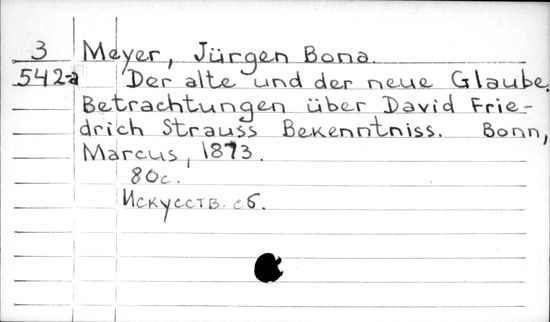 3 Meyer, Jürgen Bona.
542-a Der alte und der neue Glaube.
Betrachtungen über David Frie-
drich Strauss Bekenntniss. Bonn,
Marcus, 1873.
80с.
Искусств. сб.